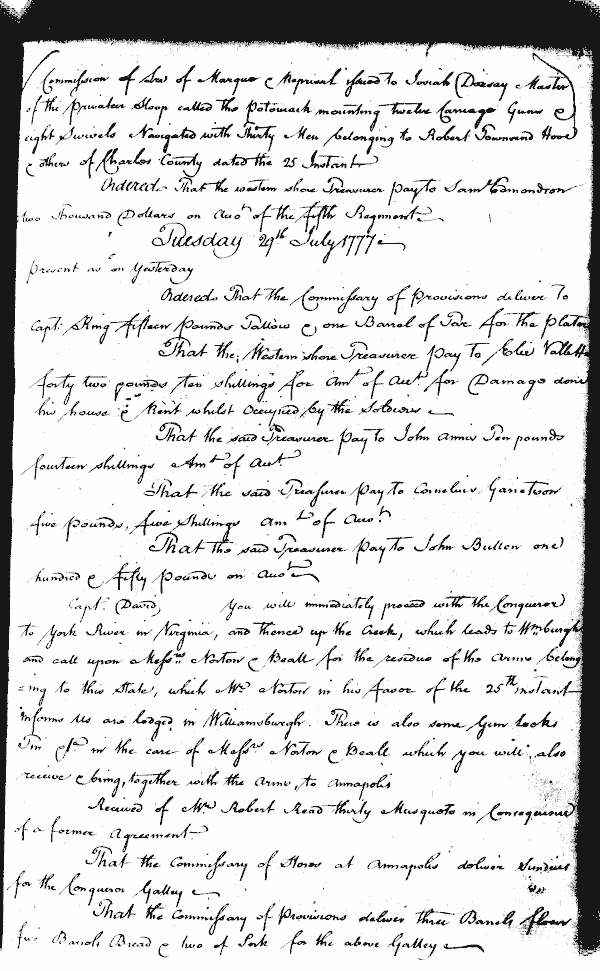 Commission of Lre of Marque & Reprisal issued to Josiah Dorsay Master
of the Privateer Sloop called the Potowmack mounting twelve Carriage Guns &
eight Swivels Navigated with Thirty Men belonging to Robert Townsend Hooe
& others of Charles County dated the 25 Instant
Ordered That the western shore Treasurer pay to Saml Edmondson
two thousand Dollars on Acct of the fifth Regiment
Tuesday 29th July 1777
Present as on Yesterday
Ordered That the Commissary of Provisions deliver to
Capt. King fifteen Pounds Tallow & one Barrel of Tar for the
That the Western shore Treasurer pay to Elie Vallette
forty two pounds ten shillings for Amt of Acct for Damage done
his house & Rent whilst Occupied by the Soldiers
That the said Treasurer Pay to John Annis Ten pounds
fourteen shillings Amt of Acct
That the said Treasurer Pay to Cornelius Garretson
five pounds, five Shillings Amt of Acct
That the said Treasurer Pay to John Bullen one
hundred & fifty Pounds on Acct
Capt. David, You will immediately proceed with the Conqueror
to York River in Virginia, and thence up the Creek, which leads to Wmsburgh
and call upon Messrs Norton & Beall for the residue of the Arms belong
=ing to this State, which Mr Norton in his favor of the 25th instant
informs Us are lodged in Williamsburgh. There is also some Gun Locks
Tin &c in the care of Messrs Norton & Beall which you will also
receive & bring, together with the Arms, to Annapolis
Received of Mr Robert Read thirty Musquets in Consequence
of a former Agreement
That the Commissary of Stores at Annapolis deliver Sundries
for the Conqueror Galley
That the Commissary of Provisions deliver three Barrels flour
five Barrels Bread & two of Pork for the above Galley